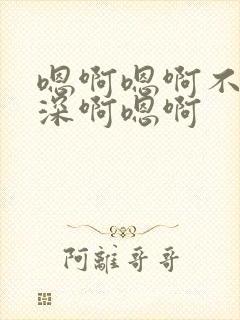 嗯啊嗯啊不
深啊嗯啊
阿離哥哥